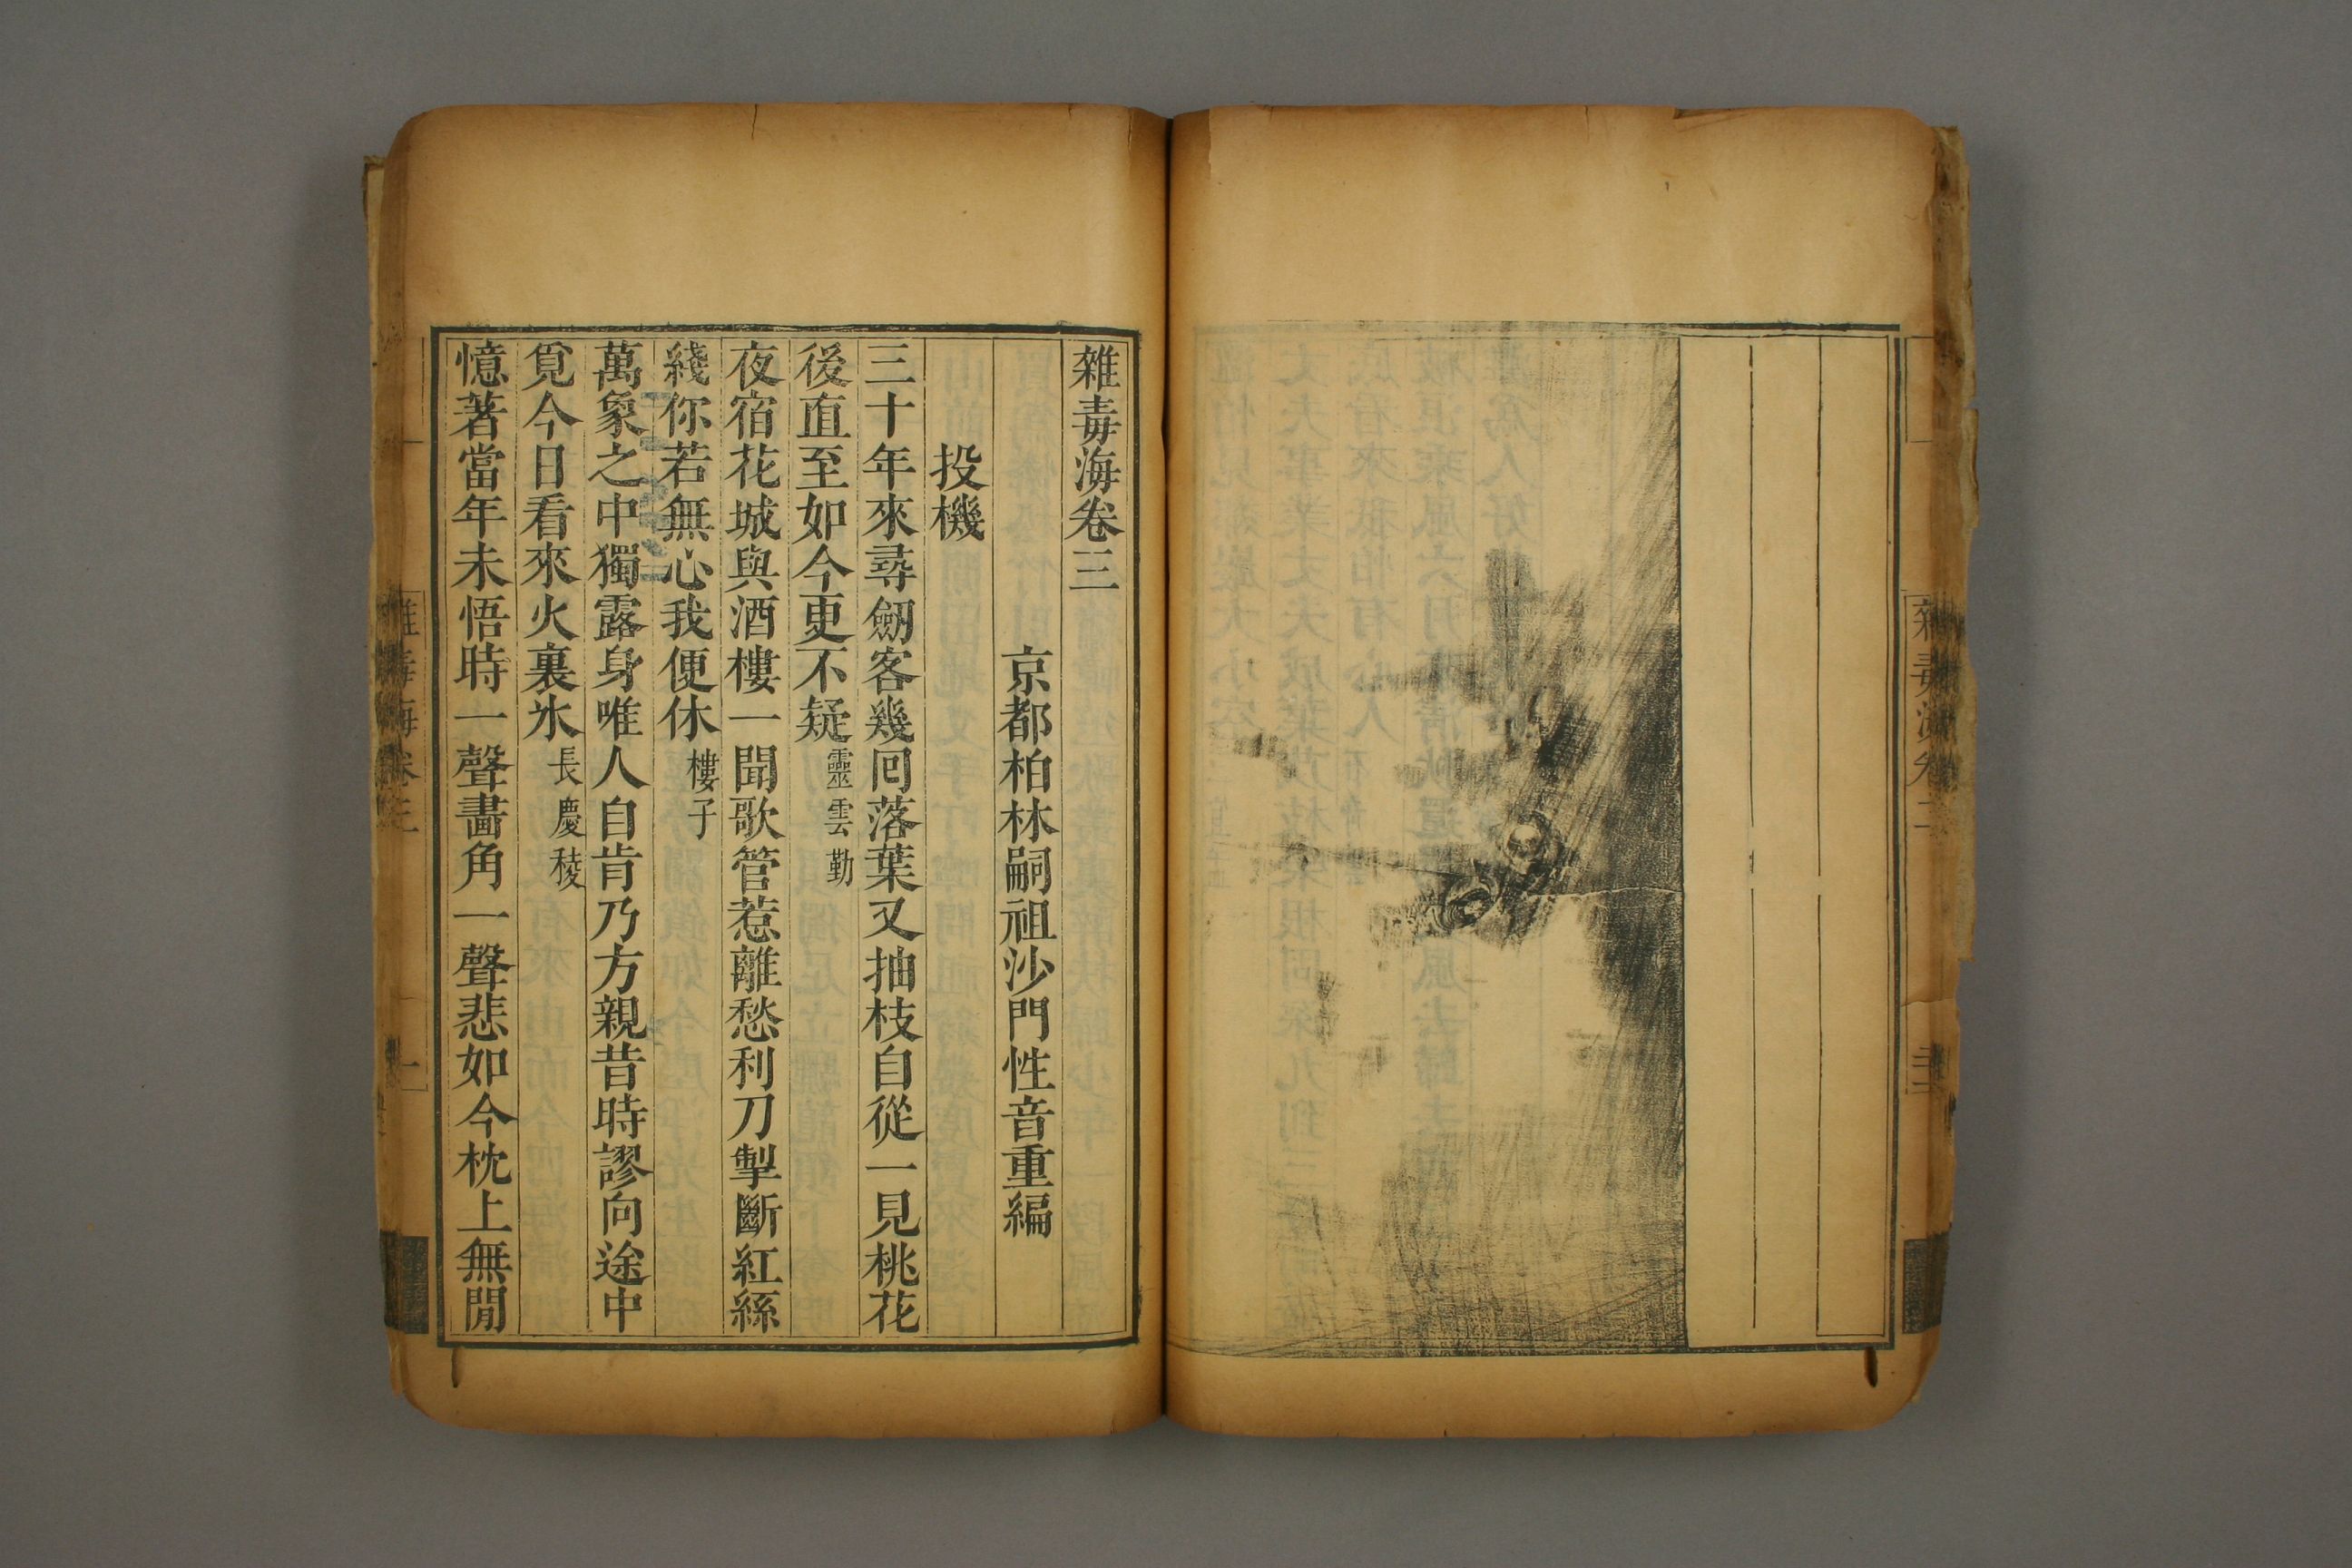 雜毒海卷二
雜毒海卷三
京都柏林嗣祖沙門性音重編
投機
三十年來尋劒客幾回落葉又抽枝自從一見桃花
後直至如今更不疑靈雲勤
夜宿花城與酒樓一聞歌管惹離愁利刀掣斷紅絲
綫你若無心我便休樓子
萬象之中獨露身唯人自肯乃方親昔時謬向途中
覓今日看來火裏氷長慶稜
憶著當年未悟時一聲畵角一聲悲如今枕上無閒
雜毒海卷三
一